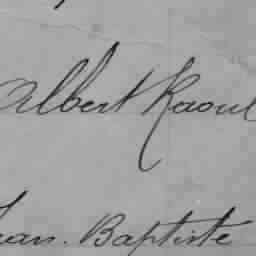 Albert Raoul
Jean. Baptiste